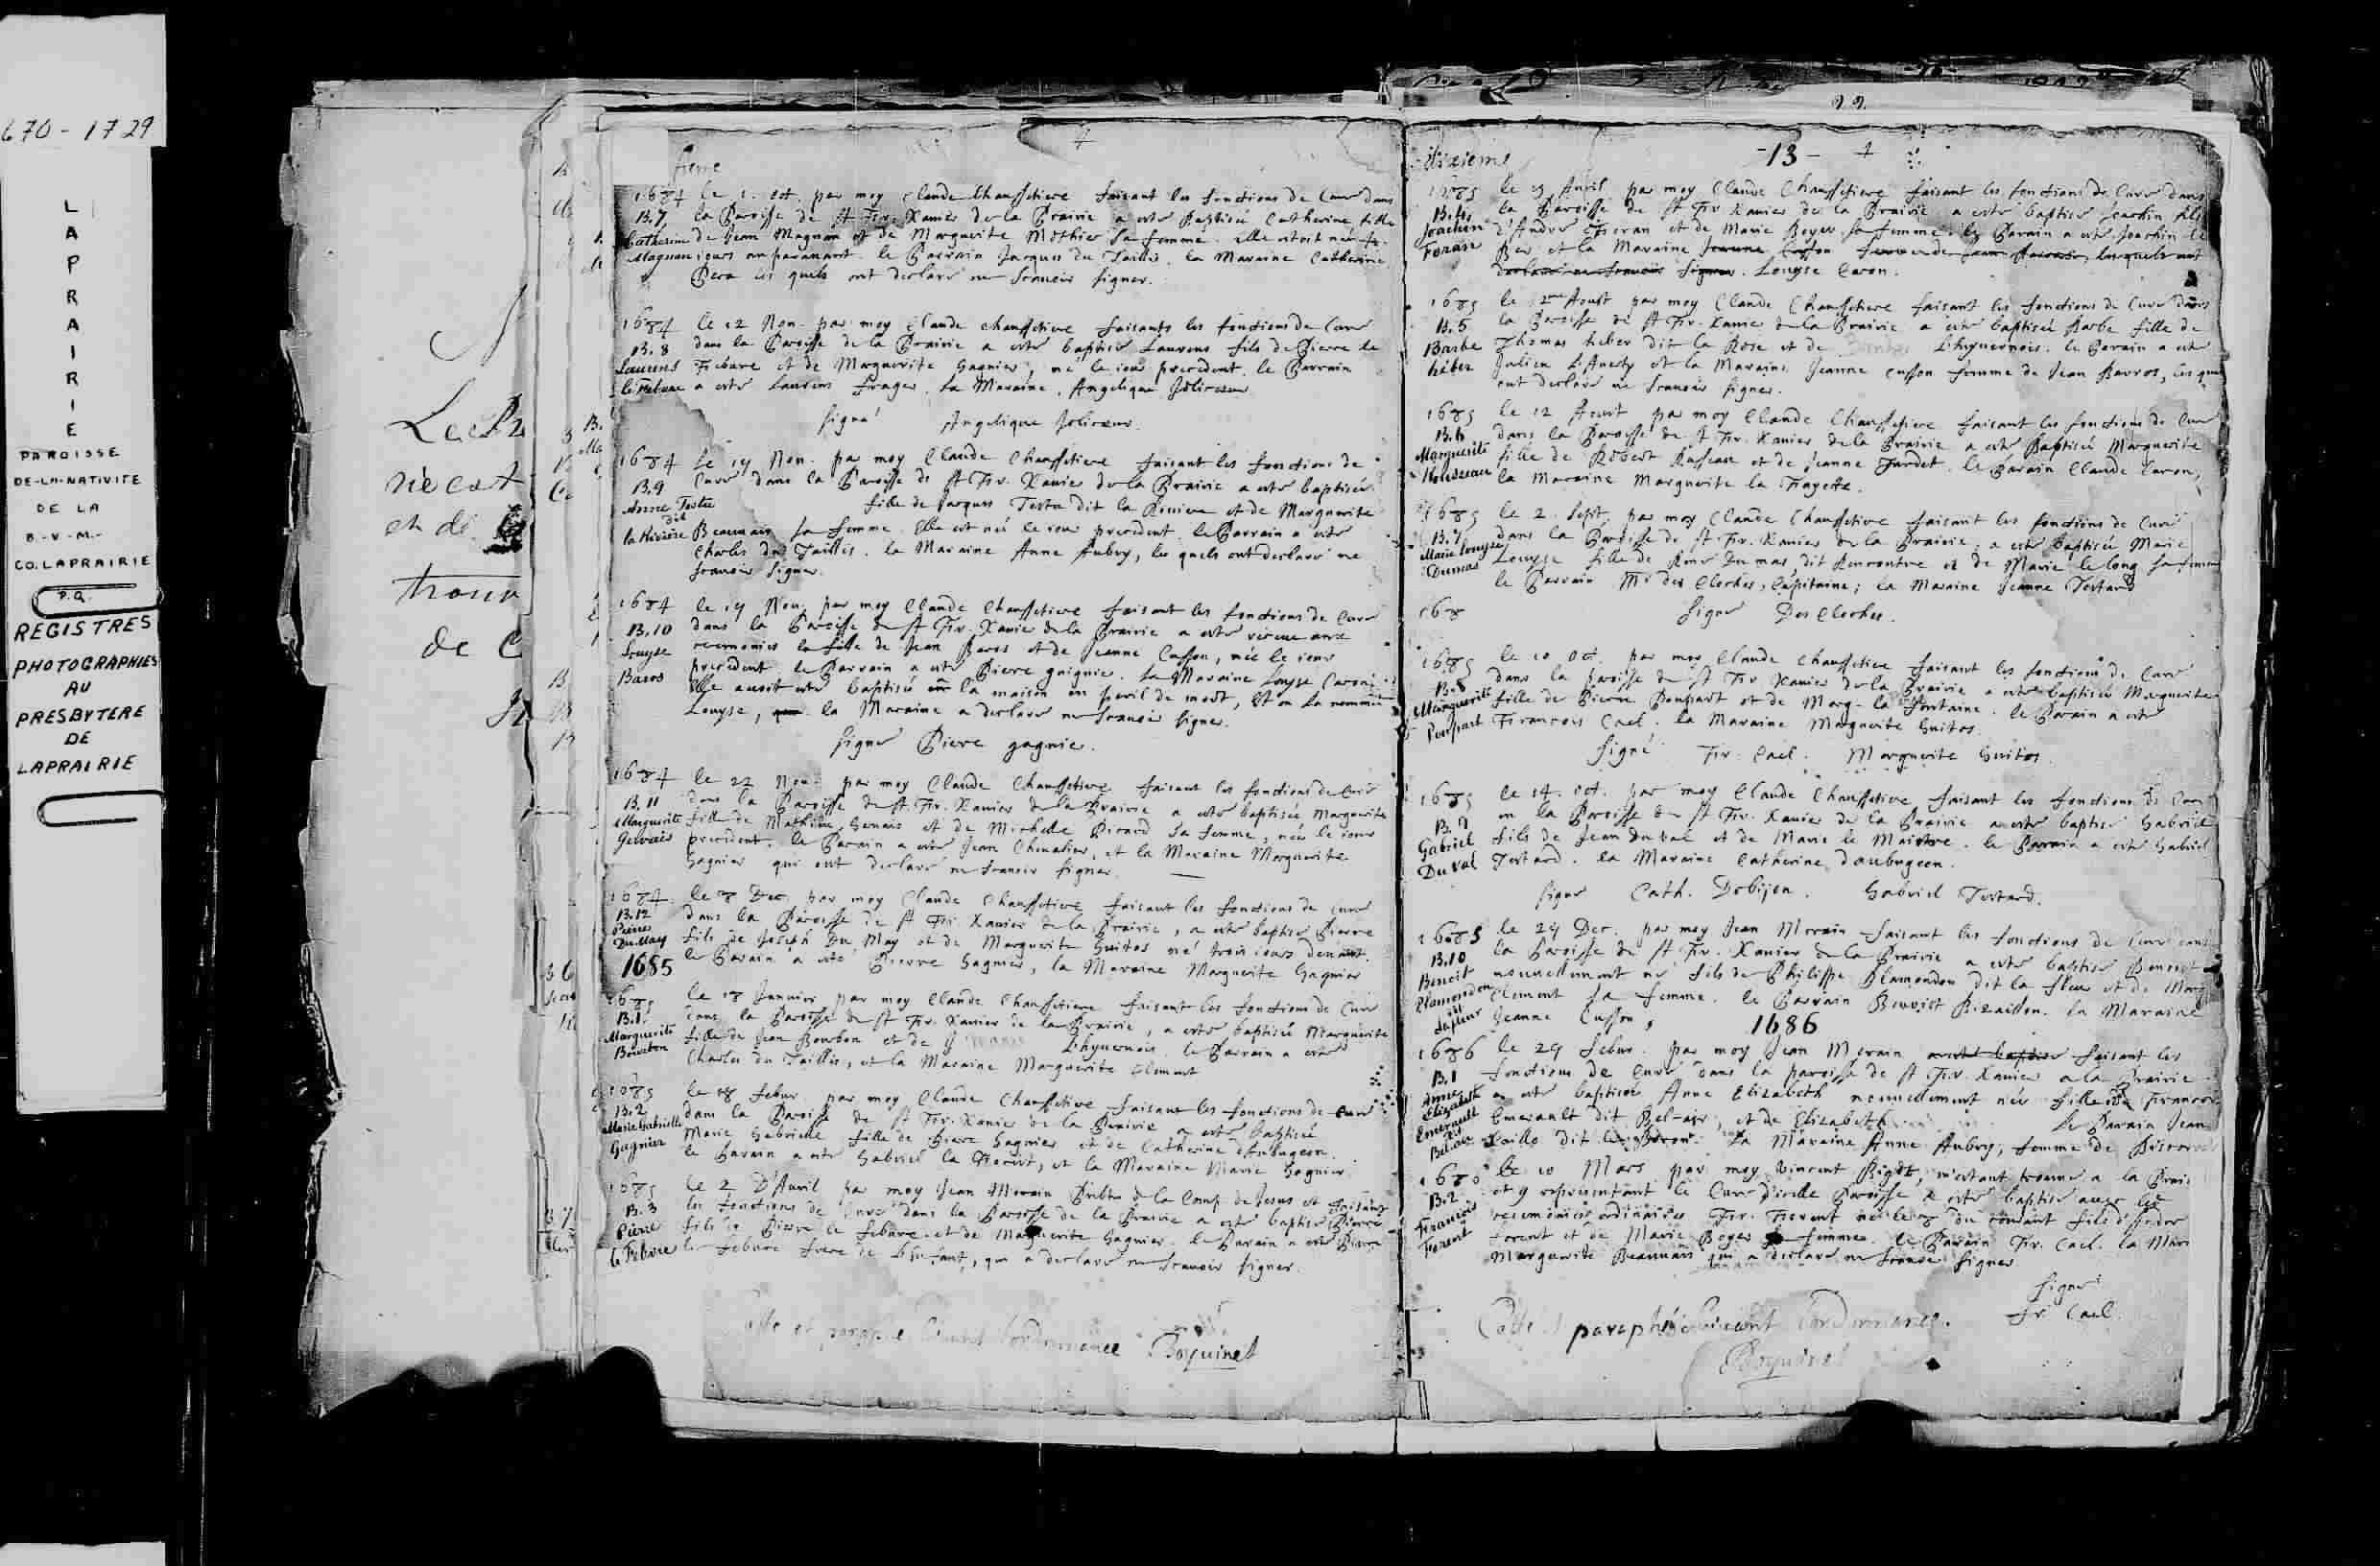 670-1729
LAPRAIRIE
PAROISSE
DE-LA-NATIVITE
DE LA
B.-V.-M.-
CO. LAPRAIRIE
P.Q.
REGISTRES
PHOTOGRAPHIES
AU
PRESBYTERE
DE
LAPRAIRIE
1684 le 1. oct. par moy Claude Chauffetiere faisant les fonctions de Curé dans
B.7 la Paroisse de St Fr. Xavier de la Prairie a esté baptisée Catherine fille
Catherine de Jean Magnan et de Marguerite Mothier sa femme. elle estoit née
Magnan jours auparavant. le Parrain Jacques du Taillis. la Maraine Catherine
les quels ont declaré ne scavoir signer.
1684 le 12 Nov. par moy Claude chauffetiere faisants les fonctions de Curé
B.8 dans la Paroisse de la Prairie a esté baptisé Laurens fils de Pierre le
Laurens Febure et de Marguerite Gagnier, né le iour precedent. le Parrain
le Febvre a esté Laurens. la Maraine, Angelique Jolicoeur
signé Angelique Jolicoeur.
1684 le 19 Nov. par moy Claude Chauffetiere faisant les fonctions de
B.9 Curé dans la Paroisse de St Fr. Xavier de la Prairie a esté baptisée
Anne Testu dit fille de Jacques Testu dit la Riviere et de Marguerite
la Rivière Beaumais sa femme. Elle est née le iour precedent. le Parrain a esté
Charles du Taillis. la Maraine Anne Aubry, les quels ont declaré ne
scavoir signer.
1684 le 19 Nov. par moy Claude Chauffetiere faisant les fonctions de Curé
B.10 dans la Paroisse de St Fr. Xavier de la Prairie a esté receue aux
Louyse ceremonies la fille de Jean Baros et de Jeanne Cusson, née le iour
Baros precedent. le Parrain a esté Pierre gaignié. la Maraine Louyse Caron.
Elle auoit esté baptisée en la maison en peril de mort, et on la nommée
Louyse, la Maraine a declaré ne scavoir signer.
signé Pierre gagnie.
1684 le 22 Nov. par moy Claude Chauffetiere faisant les fonctions de Curé
B.11 dans la Paroisse de St Fr. Xavier de la Prairie a esté baptisée Marguerite
Marguerite fille de Mathieu Geruais et de Michelle Picard sa femme, née le iour
Gervais precedent. le Parain a esté Jean Cheualier, et la Maraine Marguerite
Gagnier qui ont declaré ne scavoir signer.
1684 le 8 Dec. par moy Claude Chauffetiere faisant les fonctions de curé
B.12 dans la Paroisse de St Fr. Xavier de la Prairie, a esté baptisé Pierre
Pierre Du May fils de Joseph Du May et de Marguerite Guitos né trois iours deuant.
le Parain a esté Pierre Gagnier, la Maraine Marguerite Gagnier
1685
1685 le 18 Januier par moy Claude Chauffetiere faisant les fonctions de Curé
B.1 dans la Paroisse de St Fr. Xavier de la Prairie, a esté baptisée Marguerite
Marguerite fille de Jean Bourbon et de L'hyuernois. le Parrain a esté
Bourbon Charles du Taillis, et la Maraine Marguerite Clement
1685 le 18 Febur. par moy Claude Chauffetiere faisant les fonctions de Curé
B.2 dans la Paroisse de St Fr. Xavier de la Prairie a esté baptisée
Marie Gabrielle Marie Gabrielle fille de Pierre Gagnier et de Catherine d'Aubugeon.
Gagnier le Parain a esté Gabriel la, et la Maraine Marie Gagnier
1685 le 2 D'Auril par moy Jean Morain Prebtre de la Comp. de Jesus et faisant
B.3 les fonctions de Curé dans la Paroisse de la Prairie a esté baptisé Pierre
Pierre fils de Pierre le Febure et de Marguerite Gagnier. le Parain a esté Pierre
le Febvre le Febure frere de l'enfant, qui a declaré ne scavoir signer.
paraphé suivant l'ordonnance Boquinet
dixieme -13-
1685 le 13 Auril par moy Claude Chauffetiere faisant les fonctions de Curé dans
B.4 la Paroisse de St Fr. Xavier de la Prairie a esté baptisé Joachin fils
Joachim d'André foran et de Marie Boyer sa femme. le Parain a esté Joachin le
Foran Ber et la Maraine Jeanne Cusson femme de Jean Baros, lesquels ont
declaré ne scavoir signer. Louyse Caron.
1685 le 12me Aoust par moy Claude Chauffetiere faisant les fonctions de Curé dans
B.5 la Paroisse de St Fr. Xavier de la Prairie a esté baptisée Barbe fille de
Barbe Thomas heber dit la Rose et de L'hyuernois. le Parain a esté
héber Julien et la Maraine Jeanne Cusson femme de Jean Barros, les quels
ont declaré ne scavoir signer.
1685 le 12 Aoust par moy Claude Chauffetiere faisant les fonctions de Curé
B.6 dans la Paroisse de St Fr. Xavier de la Prairie a esté Baptisée Marguerite
Marguerite fille de Robert Russeau et de Jeanne. le Parain Claude Caron,
Rousseau la Maraine Marguerite la Fayette.
1685 le 2. Sept. par moy Claude Chauffetiere faisant les fonctions de Curé
B.7 dans la Paroisse de St Fr. Xavier de la Prairie, a esté baptisée Marie
Marie Louyse Louyse fille de René Dumas dit Rencontre et de Marie le long sa femme
Dumas le Parrain Mr des Cloches, Capitaine; la Maraine Jeanne Testard
168 signé Des Cloches.
1685 le 10 Oct. par moy Claude Chauffetiere faisant les fonctions de Curé
B.8 dans la paroisse de St Fr Xavier de la Prairie a esté baptisée Marguerite
Marguerite fille de Pierre Poupart et de Marg. la Fontaine. le Parain a esté
Poupart Francois Cael. la Maraine Marguerite Guitos.
signé Fr. Cael. Marguerite Guitos.
1685 le 14. Oct. par moy Claude Chauffetiere faisant les fonctions de Curé
B.9 en la Paroisse de St Fr. Xavier de la Prairie a esté baptisé Gabriel
Gabriel fils de Jean du Val et de Marie le Maistre. le Parrain a esté Gabriel
Du Val Testard. la Maraine Catherine d'aubugeon.
signé Cath. Dobijon. Gabriel Testard.
1685 le 29 Dec. par moy Jean Morain faisant les fonctions de Curé dans
B.10 la Paroisse de St Fr. Xavier de la Prairie a esté baptisé Benoist
Benoit nouuellement né fils de Philippe Plamondon dit la fleur et de Marg
Plamondon dit Clement sa femme. le Parrain Benoist Bizaillon. la Maraine
Lafleur Jeanne Cusson,
1686
1686 le 29 Febur. par moy Jean Morain a esté baptisé faisant les
B.1 fonctions de Curé dans la paroisse de St Fr. Xavier a la Prairie
Anne Elizabeth a esté baptisée Anne Elizabeth nouuellement née fille de Francois
Emerault dit Emerault dit Bel-air, et de Elizabeth le Parain Jean
Belair Caillo dit le Baron. la Maraine Anne Aubry, femme de
1686 le 10 Mars par moy Vincent Bigot, m'estant trouué a la Prairie
B.2 et y representant le Curé d'icelle Paroisse a esté baptisé auec les
François ceremonies ordinaires Fr. Forent né le 8 du courant fils d'André
Forent Forent et de Marie Boyer sa femme. le Parain Fr. Cael. la Mar
Marguerite Beaumais qui a declaré ne scauoir signer
signé
Fr Cael
Cotté et paraphé suivant l'ordonnance.
Boquinet